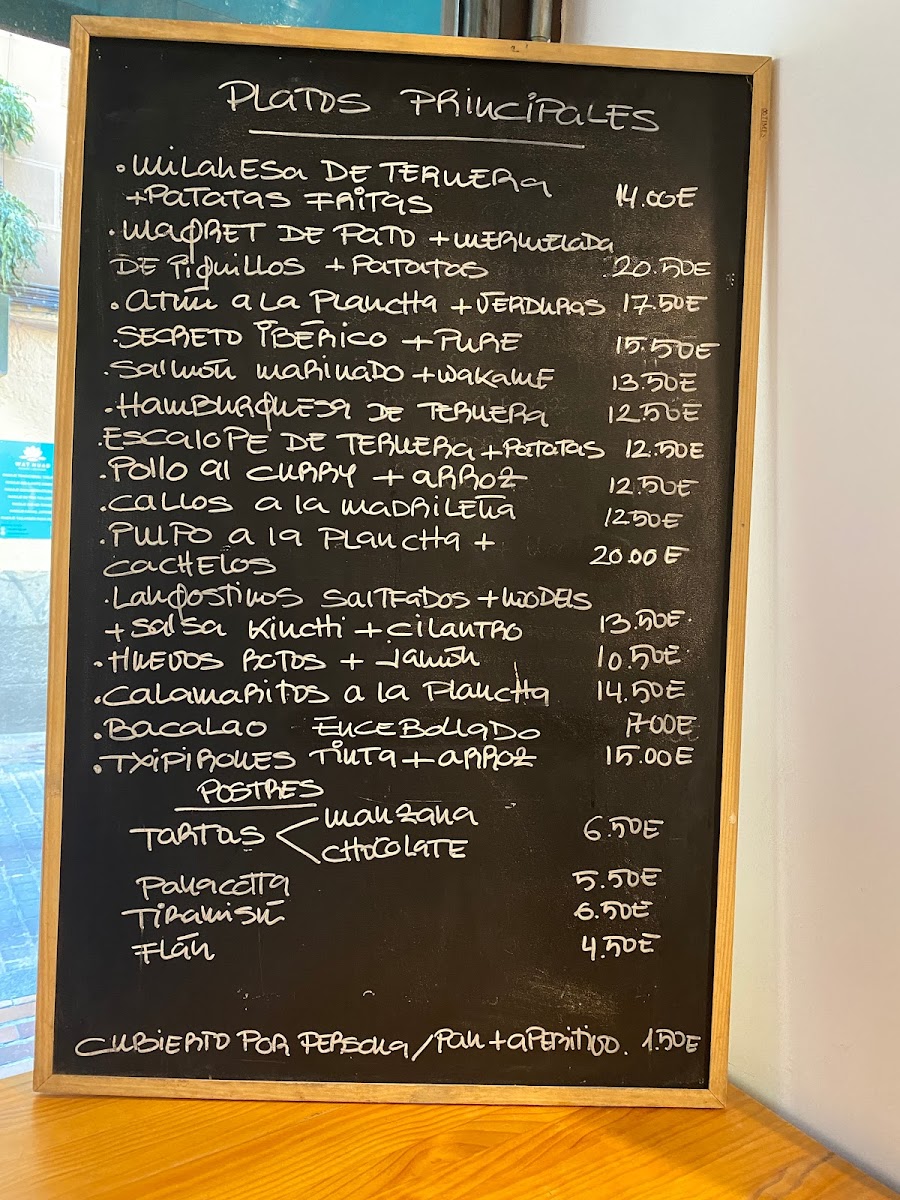 PLATOS PRINCIPALES
. MILANESA DE TERNERA
+PATATAS FRITAS 14.00E
. MAGRET DE PATO + MERMELADA
DE PIQUILLOS + PATATAS 20.50E
. ATÚN A LA PLANCHA + VERDURAS 17.50E
. SECRETO IBÉRICO + PURE 15.50E
. SALMÓN MARINADO + WAKAME 13.50E
. HAMBURGUESA DE TERNERA 12.50E
. ESCALOPE DE TERNERA + PATATAS 12.50E
. POLLO AL CURRY + ARROZ 12.50E
. CALLOS A LA MADRILEÑA 12.50E
. PULPO A LA PLANCHA +
CACHELOS 20.00E
. LANGOSTINOS SALTEADOS + NODELS
+ SALSA KINCHI + CILANTRO 13.50E
. HUEVOS ROTOS + JAMÓN 10.50E
. CALAMARITOS A LA PLANCHA 14.50E
. BACALAO ENCEBOLLADO 17.00E
. TXIPIRONES TINTA + ARROZ 15.00E
POSTRES
TARTAS < MANZANA 6.50E
CHOCOLATE
PANACOTTA 5.50E
TIRAMISÚ 6.50E
FLÁN 4.50E
CUBIERTO POR PERSONA / PAN + APERITIVO. 1.50E